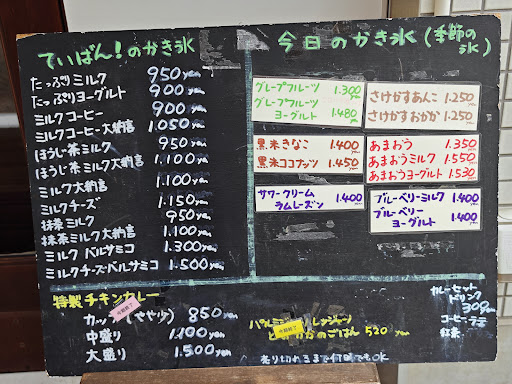 ていばん!のかき氷
たっぷりミルク 950yen
たっぷりヨーグルト 900yen
ミルクコーヒー 900yen
ミルクコーヒー大納言 1.050yen
ほうじ茶ミルク 950yen
ほうじ茶ミルク大納言 1.100yen
ミルク大納言 1.100yen
ミルクチーズ 1.150yen
抹茶ミルク 950yen
抹茶ミルク大納言 1.100yen
ミルクバルサミコ 1.300yen
ミルクチーズバルサミコ 1.500yen
今日のかき氷(季節の氷)
グレープフルーツ 1.300yen
グレープフルーツ
ヨーグルト 1.480yen
さけかすあんこ 1.250yen
さけかすおかか 1.250yen
黒米きなこ 1.400yen
黒米ココナッツ 1.450yen
あまおう 1.350yen
あまおうミルク 1.550yen
あまおうヨーグルト 1.530yen
サワークリーム
ラムレーズン 1.400yen
ブルーベリーミルク 1.400yen
ブルーベリー
ヨーグルト 1.400yen
特製チキンカレー
カップ(やや少) 850yen
中盛り 1.100yen
大盛り 1.500yen
ごはん 520yen
売り切れるまで何回でもOK
カレーセット
ドリンク
300yen
コーヒー
紅茶